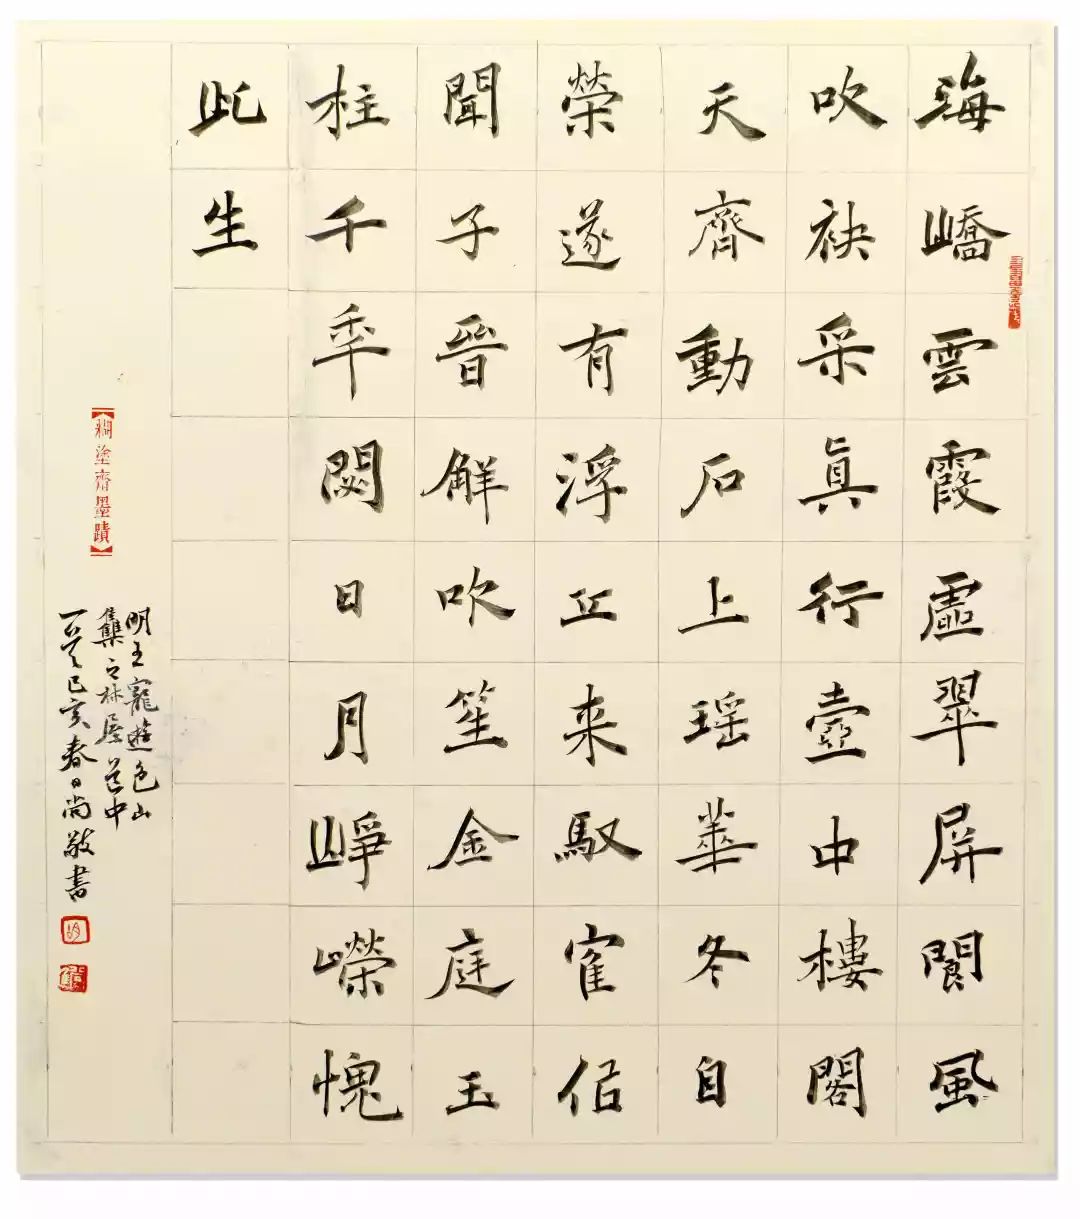 海嶠雲霞虛翠屏閬風
吹袂采真行壺中樓閣
天齊動石上瑶華冬自
榮遂有浮丘来馭寉侶
聞子晉解吹笙金庭玉
柱千年閟日月崢嶸愧
此生
明王寵遊包山
集之林屋
己亥春日尚敬書
塗齊墨蹟